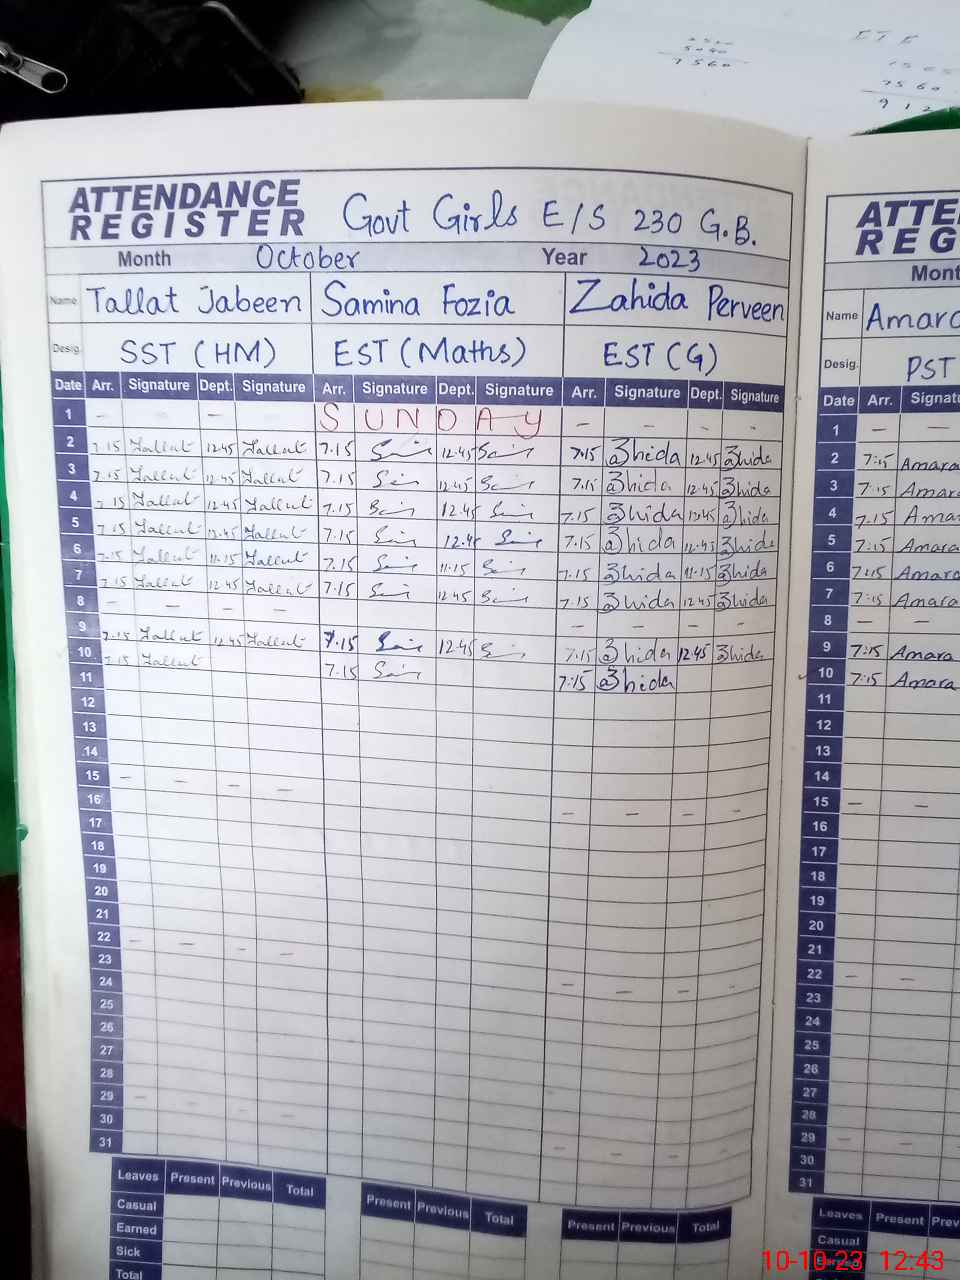 ATTENDANCE REGISTER Govt Girls E/S 230 G.B.
Month October Year 2023
Name Tallat Jabeen Samina Fozia Zahida Perveen
Desig. SST (HM) EST (Maths) EST (G)
Date Arr. Signature Dept. Signature Arr. Signature Dept. Signature Arr. Signature Dept. Signature
1 – – – S U N D A Y – – – –
2 7.15 Tallat 12.45 Tallat 7.15 12.45 7.15 Zahida 12.45 Zahida
3 7.15 Tallat 12.45 Tallat 7.15 12.45 7.15 Zahida 12.45 Zahida
4 7.15 Tallat 12.45 Tallat 7.15 12.45 7.15 Zahida 12.45 Zahida
5 7.15 Tallat 12.45 Tallat 7.15 12.45 7.15 Zahida 12.45 Zahida
6 7.15 Tallat 11.15 Tallat 7.15 11.15 7.15 Zahida 11.15 Zahida
7 7.15 Tallat 12.45 Tallat 7.15 12.45 7.15 Zahida 12.45 Zahida
8 – – – – – – – –
9 7.15 Tallat 12.45 Tallat 7.15 12.45 7.15 Zahida 12.45 Zahida
10 7.15 Tallat 7.15 7:15 Zahida
11
12
13
14
15 – – – – – – – –
16
17
18
19
20
21
22 – – – – – – – –
23
24
25
26
27
28
29 – – – – – – – –
30
31
Leaves Present Previous Total Present Previous Total Present Previous Total
Casual
Earned
Sick
Total
ATTE
REG
Mont
Name Amara
Desig. PST
Date Arr. Signatu
1 – –
2 7:15 Amara
3 7:15 Amara
4 7.15 Amara
5 7:15 Amara
6 7:15 Amara
7 7:15 Amara
8 – –
9 7:15 Amara
10 7:15 Amara
11
12
13
14
15 – –
16
17
18
19
20
21
22 – –
23
24
25
26
27
28
29 – –
30
31
Leaves Present Prev
Casual
Earned
10-10-23 12:43